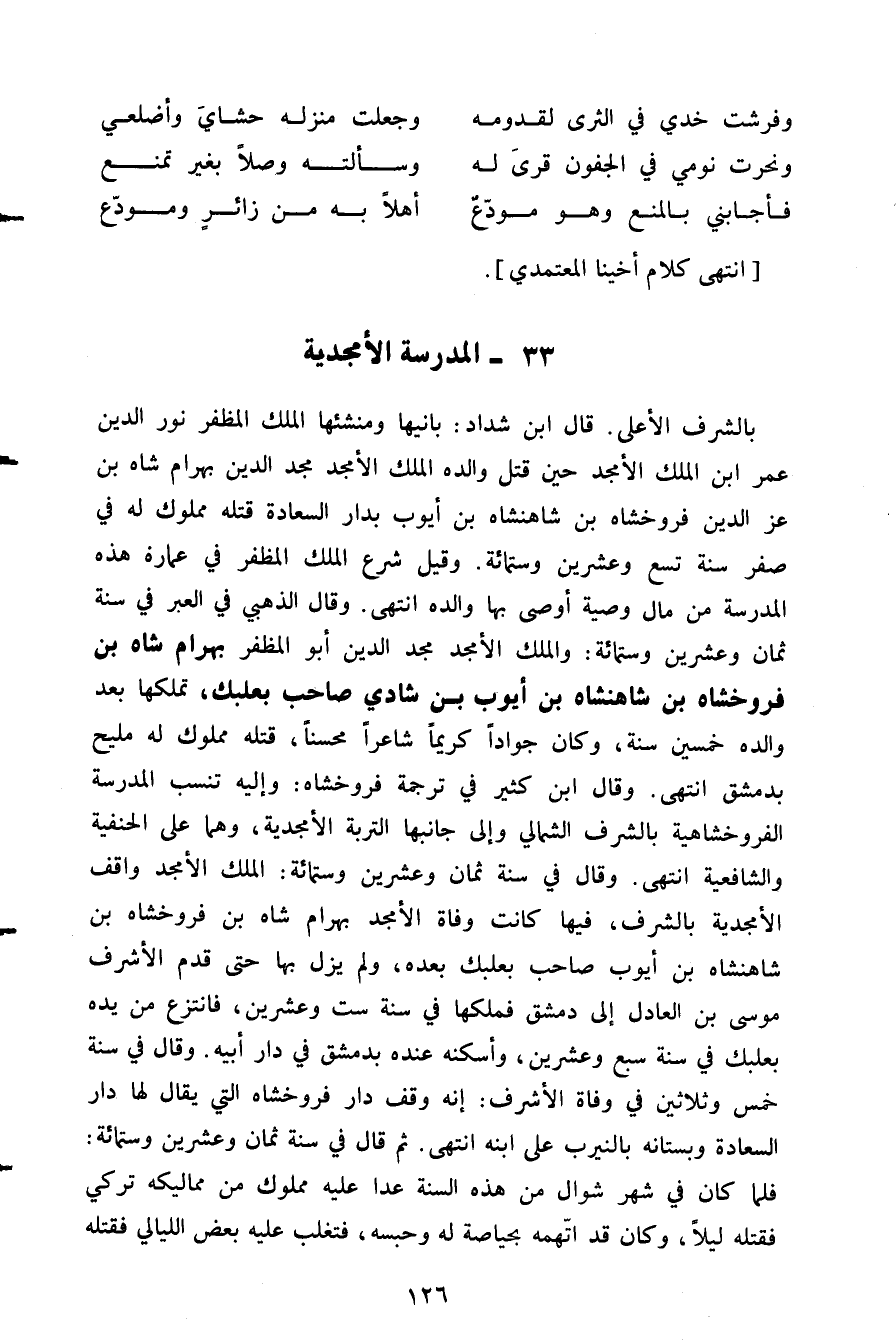 وفرشت خدي في الثرى لقدومه وجعلت منزله حشايَ وأضلعي
ونحرت نومي في الجفون قرىَ له وسألته وصلاً بغير تمنع
فأجابني بالمنع وهو مودّعٌ أهلاً به من زائرٍ ومودّع
[ انتهى كلام أخينا المعتمدي ] .
٣٣ - المدرسة الأمجدية
بالشرف الأعلى. قال ابن شداد: بانيها ومنشئها الملك المظفر نور الدين
عمر ابن الملك الأمجد حين قتل والده الملك الأمجد مجد الدين بهرام شاه بن
عز الدين فروخشاه بن شاهنشاه بن أيوب بدار السعادة قتله مملوك له في
صفر سنة تسع وعشرين وستمائة. وقيل شرع الملك المظفر في عمارة هذه
المدرسة من مال وصية أوصى بها والده انتهى. وقال الذهبي في العبر في سنة
ثمان وعشرين وستمائة: والملك الأمجد مجد الدين أبو المظفر بهرام شاه بن
فروخشاه بن شاهنشاه بن أيوب بن شادي صاحب بعلبك، تملكها بعد
والده خمسين سنة، وكان جواداً كريماً شاعراً محسناً، قتله مملوك له مليح
بدمشق انتهى. وقال ابن كثير في ترجمة فروخشاه: وإليه تنسب المدرسة
الفروخشاهية بالشرف الشمالي وإلى جانبها التربة الأمجدية، وهما على الحنفية
والشافعية انتهى. وقال في سنة ثمان وعشرين وستمائة: الملك الأمجد واقف
الأمجدية بالشرف، فيها كانت وفاة الأمجد بهرام شاه بن فروخشاه بن
شاهنشاه بن أيوب صاحب بعلبك بعده، ولم يزل بها حتى قدم الأشرف
موسى بن العادل إلى دمشق فملكها في سنة ست وعشرين، فانتزع من يده
بعلبك في سنة سبع وعشرين، وأسكنه عنده بدمشق في دار أبيه. وقال في سنة
خمس وثلاثين في وفاة الأشرف: إنه وقف دار فروخشاه التي يقال لها دار
السعادة وبستانه بالنيرب على ابنه انتهى. ثم قال في سنة ثمان وعشرين وستمائة:
فلما كان في شهر شوال من هذه السنة عدا عليه مملوك من مماليكه تركي
فقتله ليلاً، وكان قد اتّهمه بحياصة له وحبسه، فتغلب عليه بعض الليالي فقتله
١٢٦